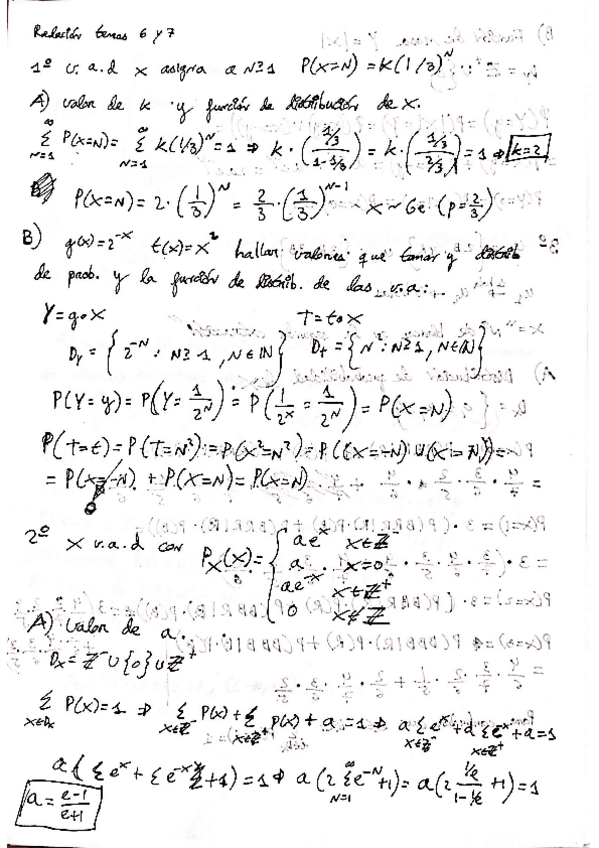 Relación temas 6 y 7
1º v.a.d x asigna a N≥1 P(X=N) = K(1/3)^N
A) valor de k y función de distribución de x.
∞ΣN=1 P(X=N) = ∞ΣN=1 K(1/3)^N = 1 ⇒ K · ( (1/3)/(1-1/3) ) = K · ( (1/3)/(2/3) ) = 1 ⇒ K=2
P(X=N) = 2 · (1/3)^N = 2/3 · (1/3)^(N-1) X ~ Ge (p=2/3)
B) g(x) = 2^-x t(x) = x^2 hallar valores que toman y distrib
de prob. y la función de distrib. de las v.a:
Y = g∘X T = t∘X
Dy = {2^-N : N≥1, N∈ℕ} Dt = {N^2 : N≥1, N∈ℕ}
P(Y=y) = P(Y = 1/2^N) = P(1/2^x = 1/2^N) = P(X=N)
P(T=t) = P(T=N^2) = P(X^2=N^2) = P((X=-N) ∪ (X=N)) =
= P(X=-N) + P(X=N) = P(X=N)
0
2º X v.a.d con Px(x) = { ae^x x∈ℤ^-
a x=0
ae^-x x∈ℤ^+
0 x∉ℤ
A) Valor de a.
Dx = ℤ^- ∪ {0} ∪ ℤ^+
Σx∈Dx P(x) = 1 ⇒ Σx∈ℤ^- P(x) + Σx∈ℤ^+ P(x) + a = 1 ⇒ a Σx∈ℤ^- e^x + a Σx∈ℤ^+ e^-x + a = 1
a (Σe^x + Σe^-x + 1) = 1 ⇒ a (2 ∞ΣN=1 e^-N + 1) = a (2 (1/e)/(1-1/e) + 1) = 1
a = (e-1)/(e+1)